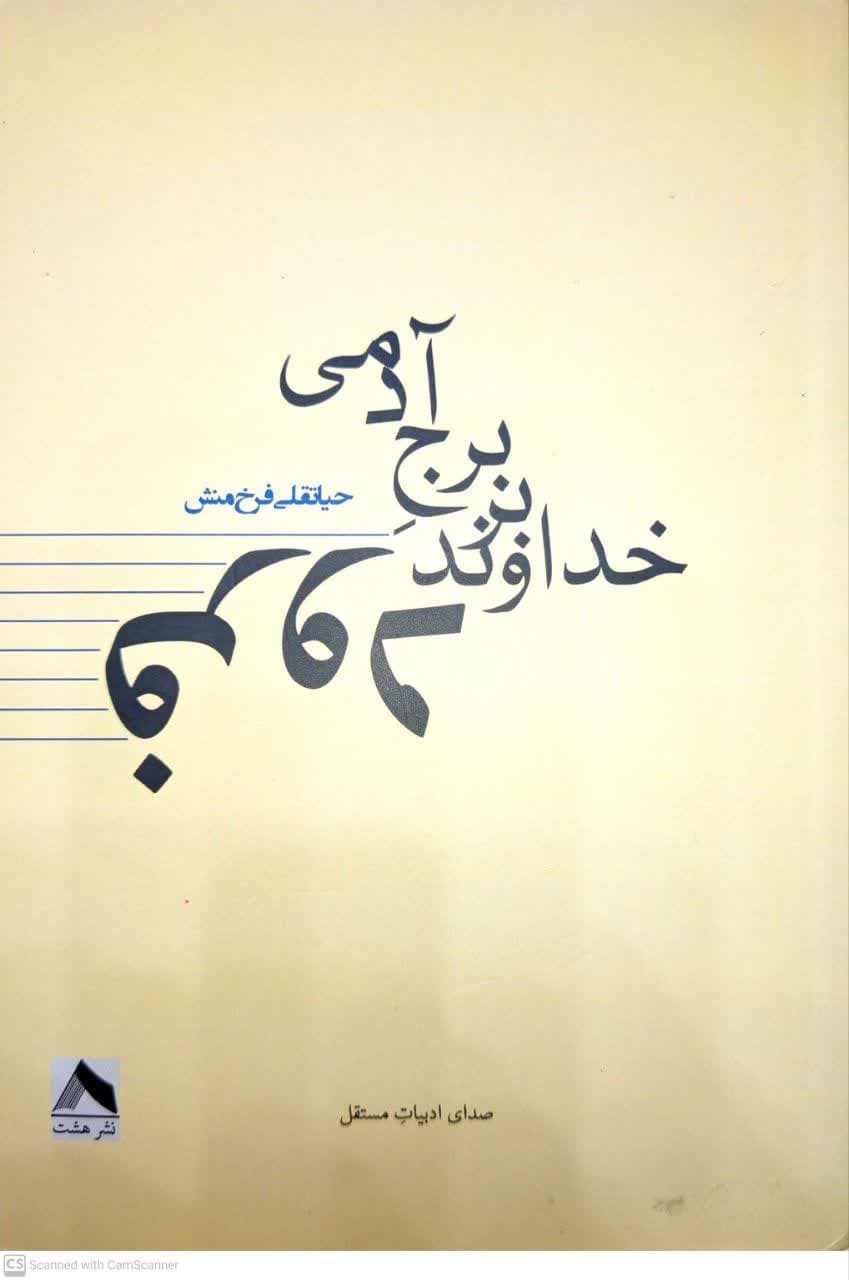 آدمی
برج
بر
حیاتقلی فرخ منش
خداوند
فرود
صدای ادبیاتِ مستقل
نشر هشت
CS Scanned with CamScanner